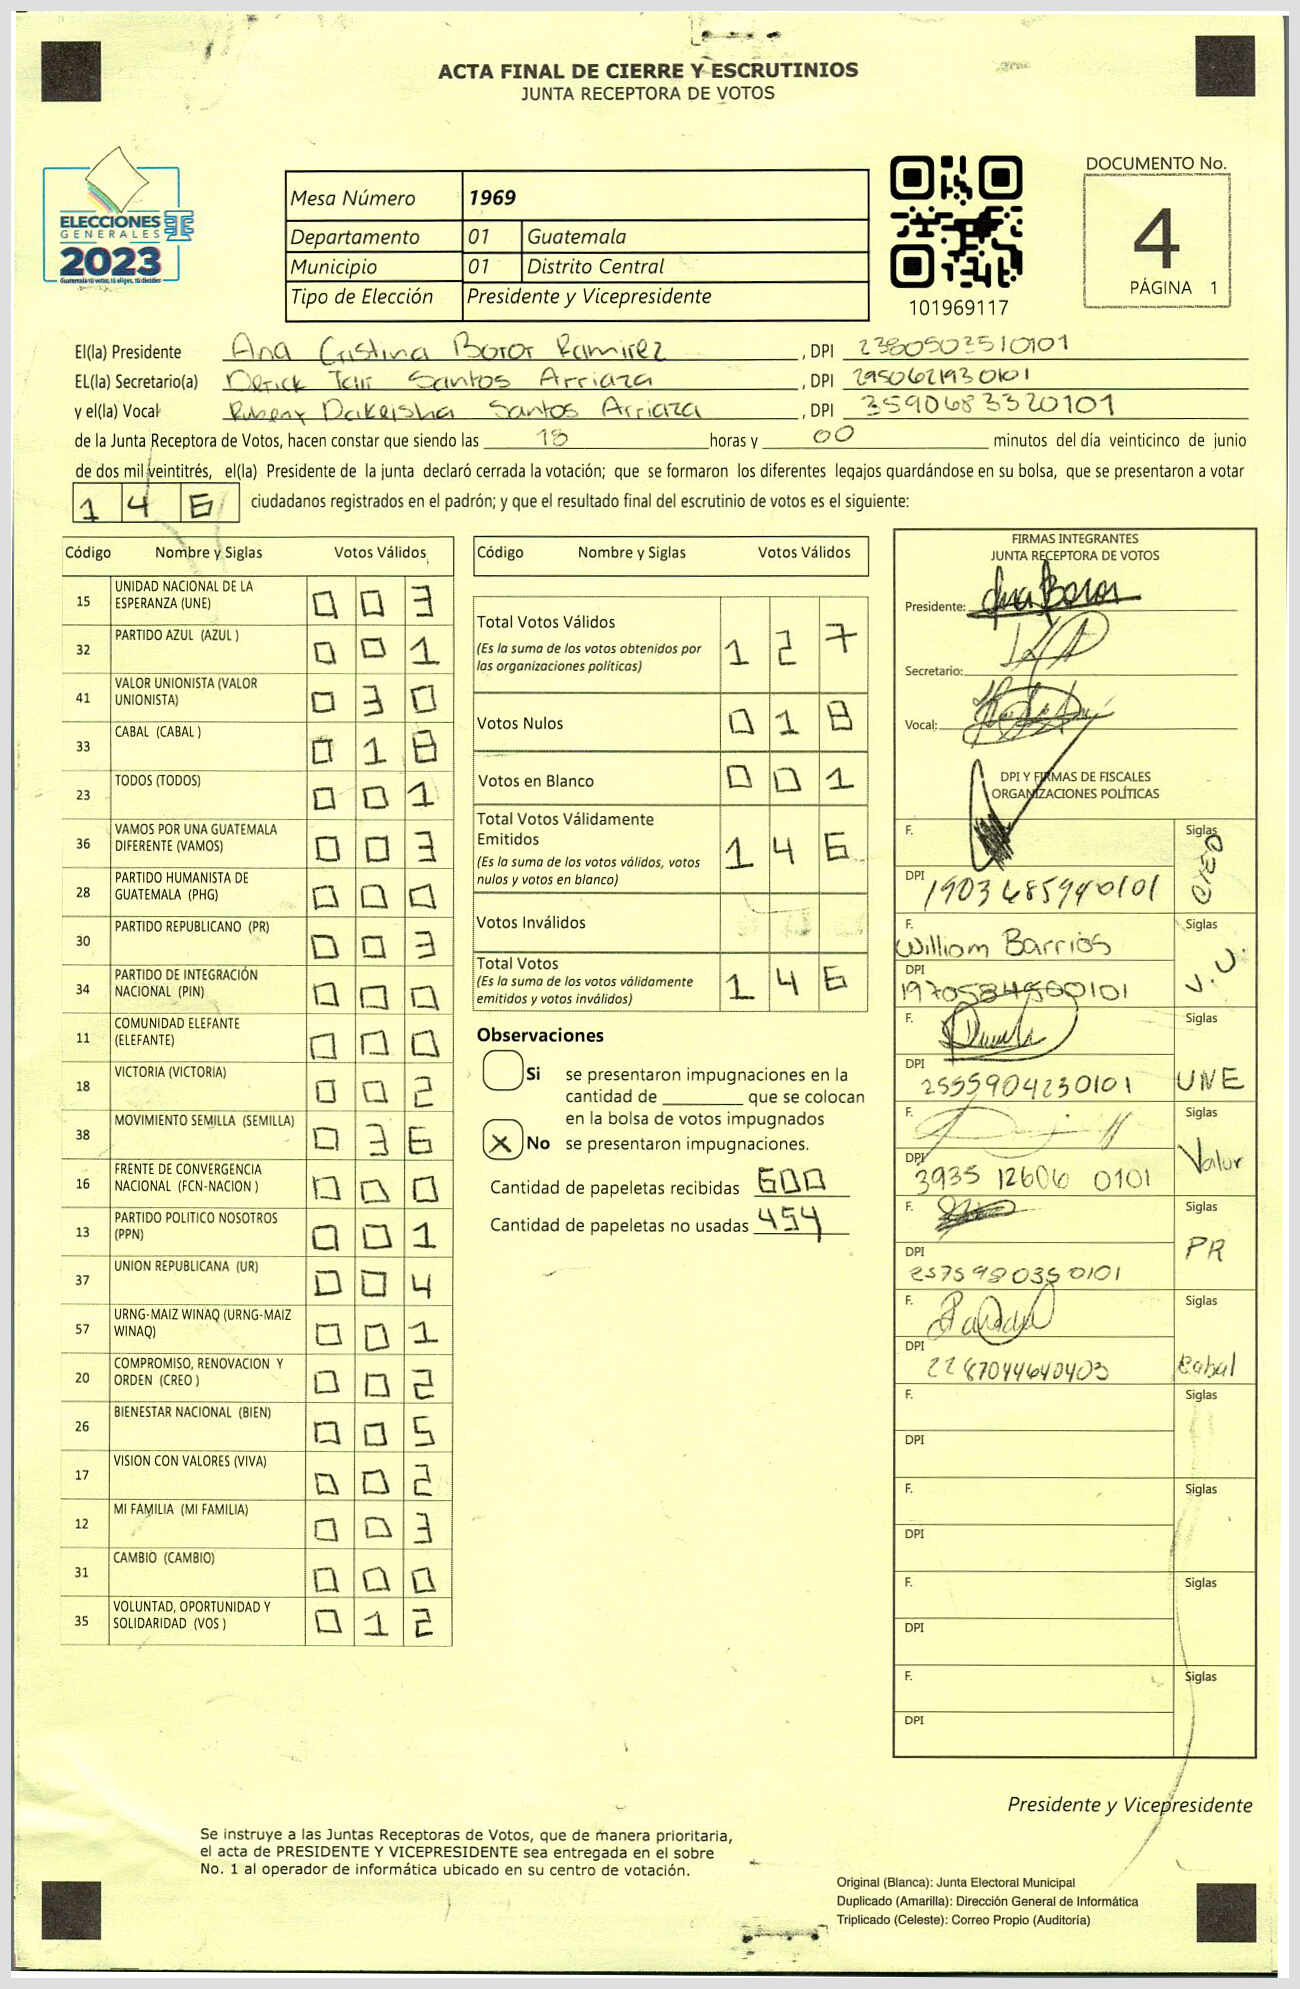 ACTA FINAL DE CIERRE Y ESCRUTINIOS
JUNTA RECEPTORA DE VOTOS
ELECCIONES
GENERALES
2023
Guatemala tú votas, tú eliges, tú decides
Mesa Número 1969
Departamento 01 Guatemala
Municipio 01 Distrito Central
Tipo de Elección Presidente y Vicepresidente
101969117
DOCUMENTO No.
4
PÁGINA 1
El(la) Presidente Ana Cristina Boror Ramirez, DPI 2380502510101
EL(la) Secretario(a) Derick Jair Santos Arriaza, DPI 2950621930101
y el(la) Vocal Santos Arriaza, DPI 3590683320101
de la Junta Receptora de Votos, hacen constar que siendo las 18 horas y 00 minutos del día veinticinco de junio
de dos mil veintitrés, el(la) Presidente de la junta declaró cerrada la votación; que se formaron los diferentes legajos guardándose en su bolsa, que se presentaron a votar
146 ciudadanos registrados en el padrón; y que el resultado final del escrutinio de votos es el siguiente:
Código Nombre y Siglas Votos Válidos
15 UNIDAD NACIONAL DE LA ESPERANZA (UNE) 003
32 PARTIDO AZUL (AZUL ) 001
41 VALOR UNIONISTA (VALOR UNIONISTA) 030
33 CABAL (CABAL ) 018
23 TODOS (TODOS) 001
36 VAMOS POR UNA GUATEMALA DIFERENTE (VAMOS) 003
28 PARTIDO HUMANISTA DE GUATEMALA (PHG) 000
30 PARTIDO REPUBLICANO (PR) 003
34 PARTIDO DE INTEGRACIÓN NACIONAL (PIN) 000
11 COMUNIDAD ELEFANTE (ELEFANTE) 000
18 VICTORIA (VICTORIA) 002
38 MOVIMIENTO SEMILLA (SEMILLA) 036
16 FRENTE DE CONVERGENCIA NACIONAL (FCN-NACION ) 000
13 PARTIDO POLITICO NOSOTROS (PPN) 001
37 UNION REPUBLICANA (UR) 004
57 URNG-MAIZ WINAQ (URNG-MAIZ WINAQ) 001
20 COMPROMISO, RENOVACION Y ORDEN (CREO ) 002
26 BIENESTAR NACIONAL (BIEN) 005
17 VISION CON VALORES (VIVA) 002
12 MI FAMILIA (MI FAMILIA) 003
31 CAMBIO (CAMBIO) 000
35 VOLUNTAD, OPORTUNIDAD Y SOLIDARIDAD (VOS ) 012
Código Nombre y Siglas Votos Válidos
Total Votos Válidos 127
(Es la suma de los votos obtenidos por
las organizaciones políticas)
Votos Nulos 018
Votos en Blanco 001
Total Votos Válidamente
Emitidos 146
(Es la suma de los votos válidos, votos
nulos y votos en blanco)
Votos Inválidos
Total Votos 146
(Es la suma de los votos válidamente
emitidos y votos inválidos)
Observaciones
Si se presentaron impugnaciones en la
cantidad de ________ que se colocan
en la bolsa de votos impugnados
X No se presentaron impugnaciones.
Cantidad de papeletas recibidas 600
Cantidad de papeletas no usadas 454
FIRMAS INTEGRANTES
JUNTA RECEPTORA DE VOTOS
Presidente: Ana Boror
Secretario:
Vocal:
DPI Y FIRMAS DE FISCALES
ORGANIZACIONES POLÍTICAS
F. Siglas CREO
DPI 1903685940101
F. William Barrios Siglas V.U.
DPI 1970584500101
F. Siglas UNE
DPI 2555904230101
F. Siglas Valor
DPI 3935 12606 0101
F. Siglas PR
DPI 2575980350101
F. Siglas Cabal
DPI 2287044640403
F. Siglas
DPI
F. Siglas
DPI
F. Siglas
DPI
F. Siglas
DPI
Presidente y Vicepresidente
Se instruye a las Juntas Receptoras de Votos, que de manera prioritaria,
el acta de PRESIDENTE Y VICEPRESIDENTE sea entregada en el sobre
No. 1 al operador de informática ubicado en su centro de votación.
Original (Blanca): Junta Electoral Municipal
Duplicado (Amarilla): Dirección General de Informática
Triplicado (Celeste): Correo Propio (Auditoría)